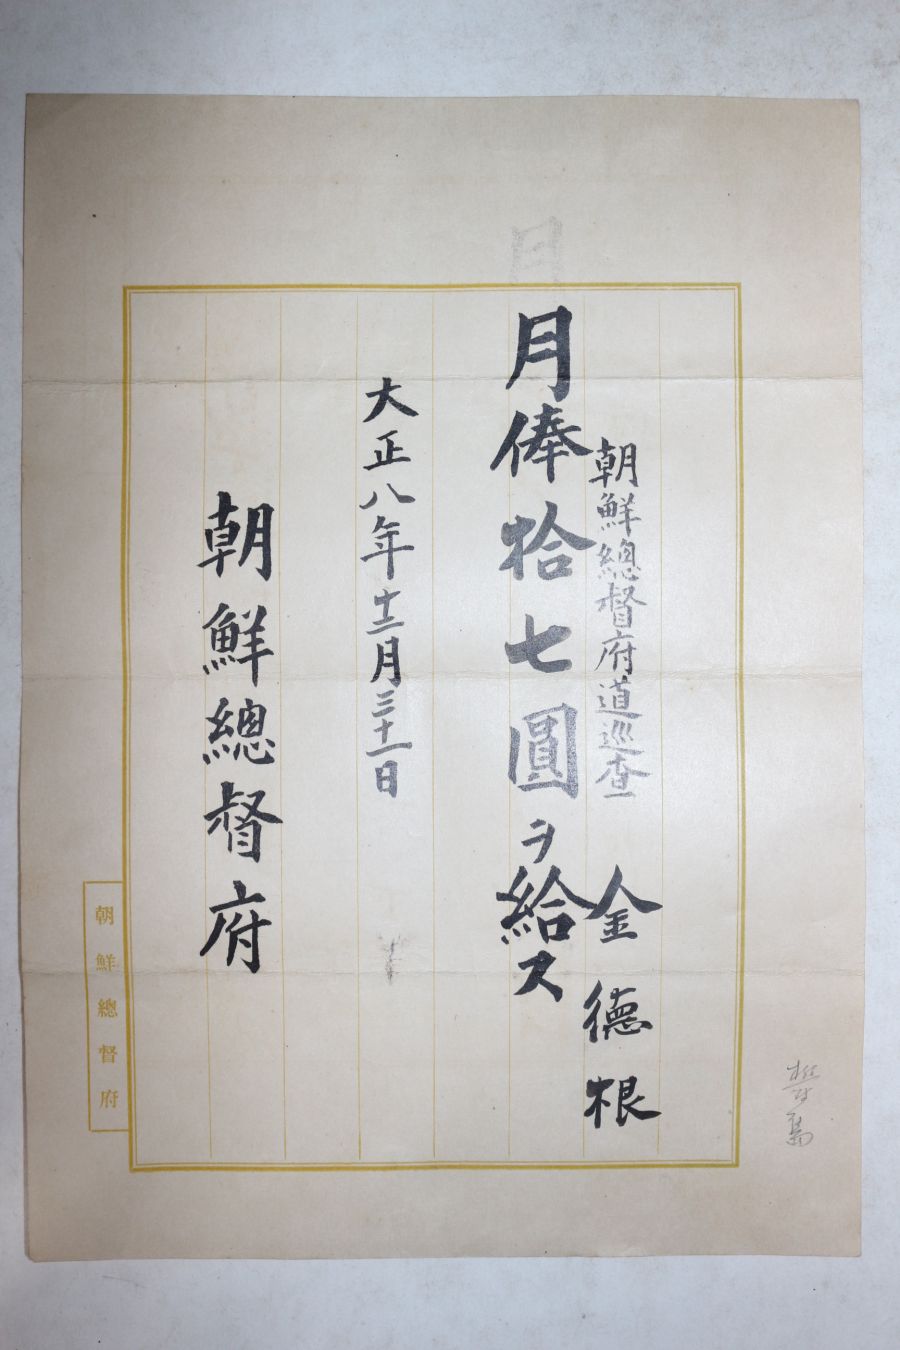 朝鮮總督府道巡査 金德根
月俸拾七圓ヲ給ス
大正八年十二月三十一日
朝鮮總督府
朝鮮總督府